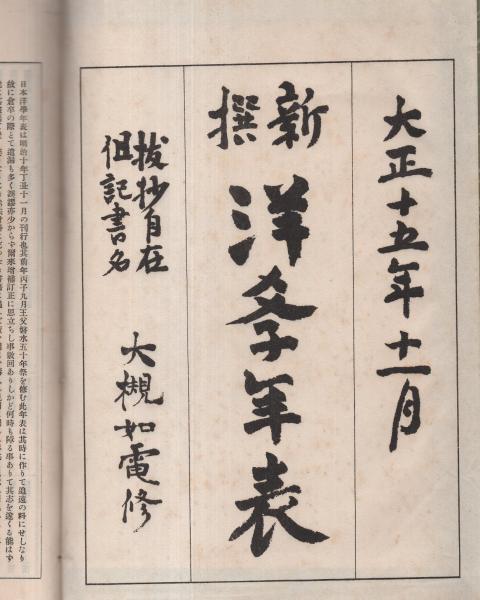 大正十五年十一月
新撰
洋学年表
抜抄自在
但記書名
大槻如電修
日本洋學年表は明治十年丁丑十一月の刊行也其前年丙子九月王父磐水五十年祭を修む此年表は其時に作りて追遠の料にせしなり
故に倉卒の際とて遺漏も多く誤謬亦少からず爾來增補訂正に思立ちし事數回ありしかど何時も障る事ありて其志を遂くる能はず